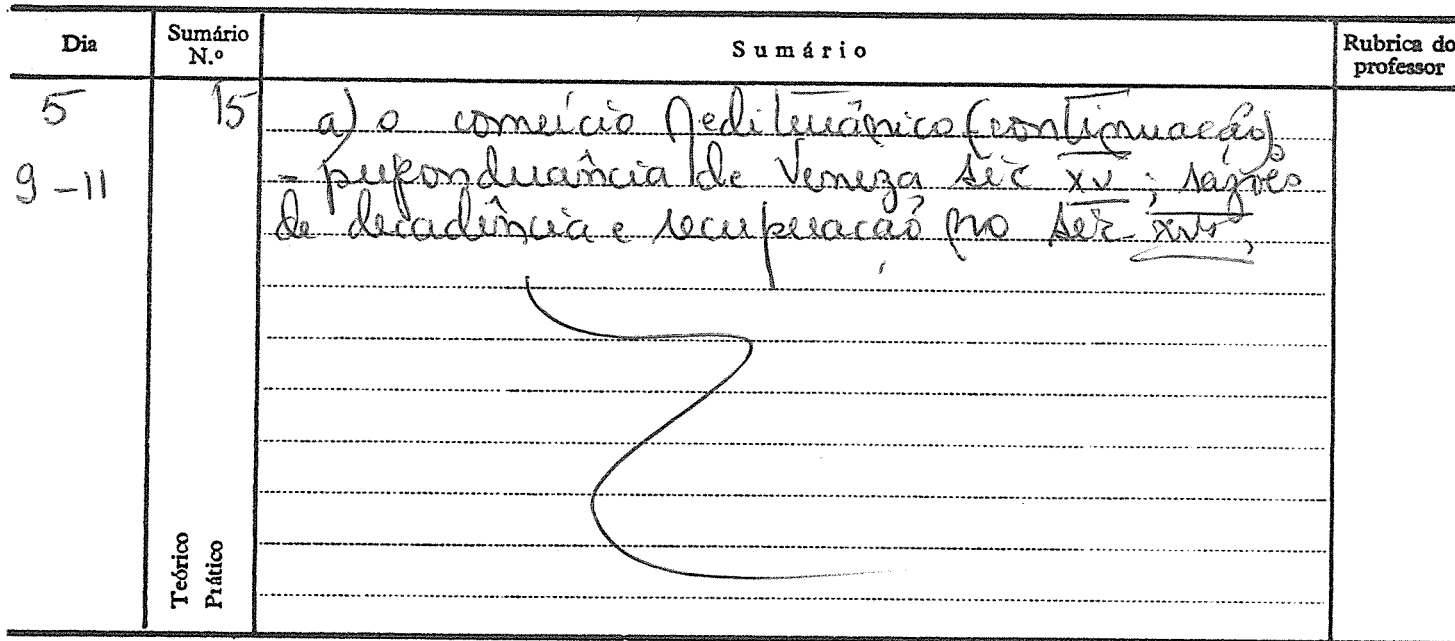 Dia
Sumário N.º
Sumário
Rubrica do professor
5
15
9-11
a) o comércio Mediterrânico (continuação)
- preponderância de Veneza séc XV; razões
de decadência e recuperação no séc XVI,
Teórico
Prático